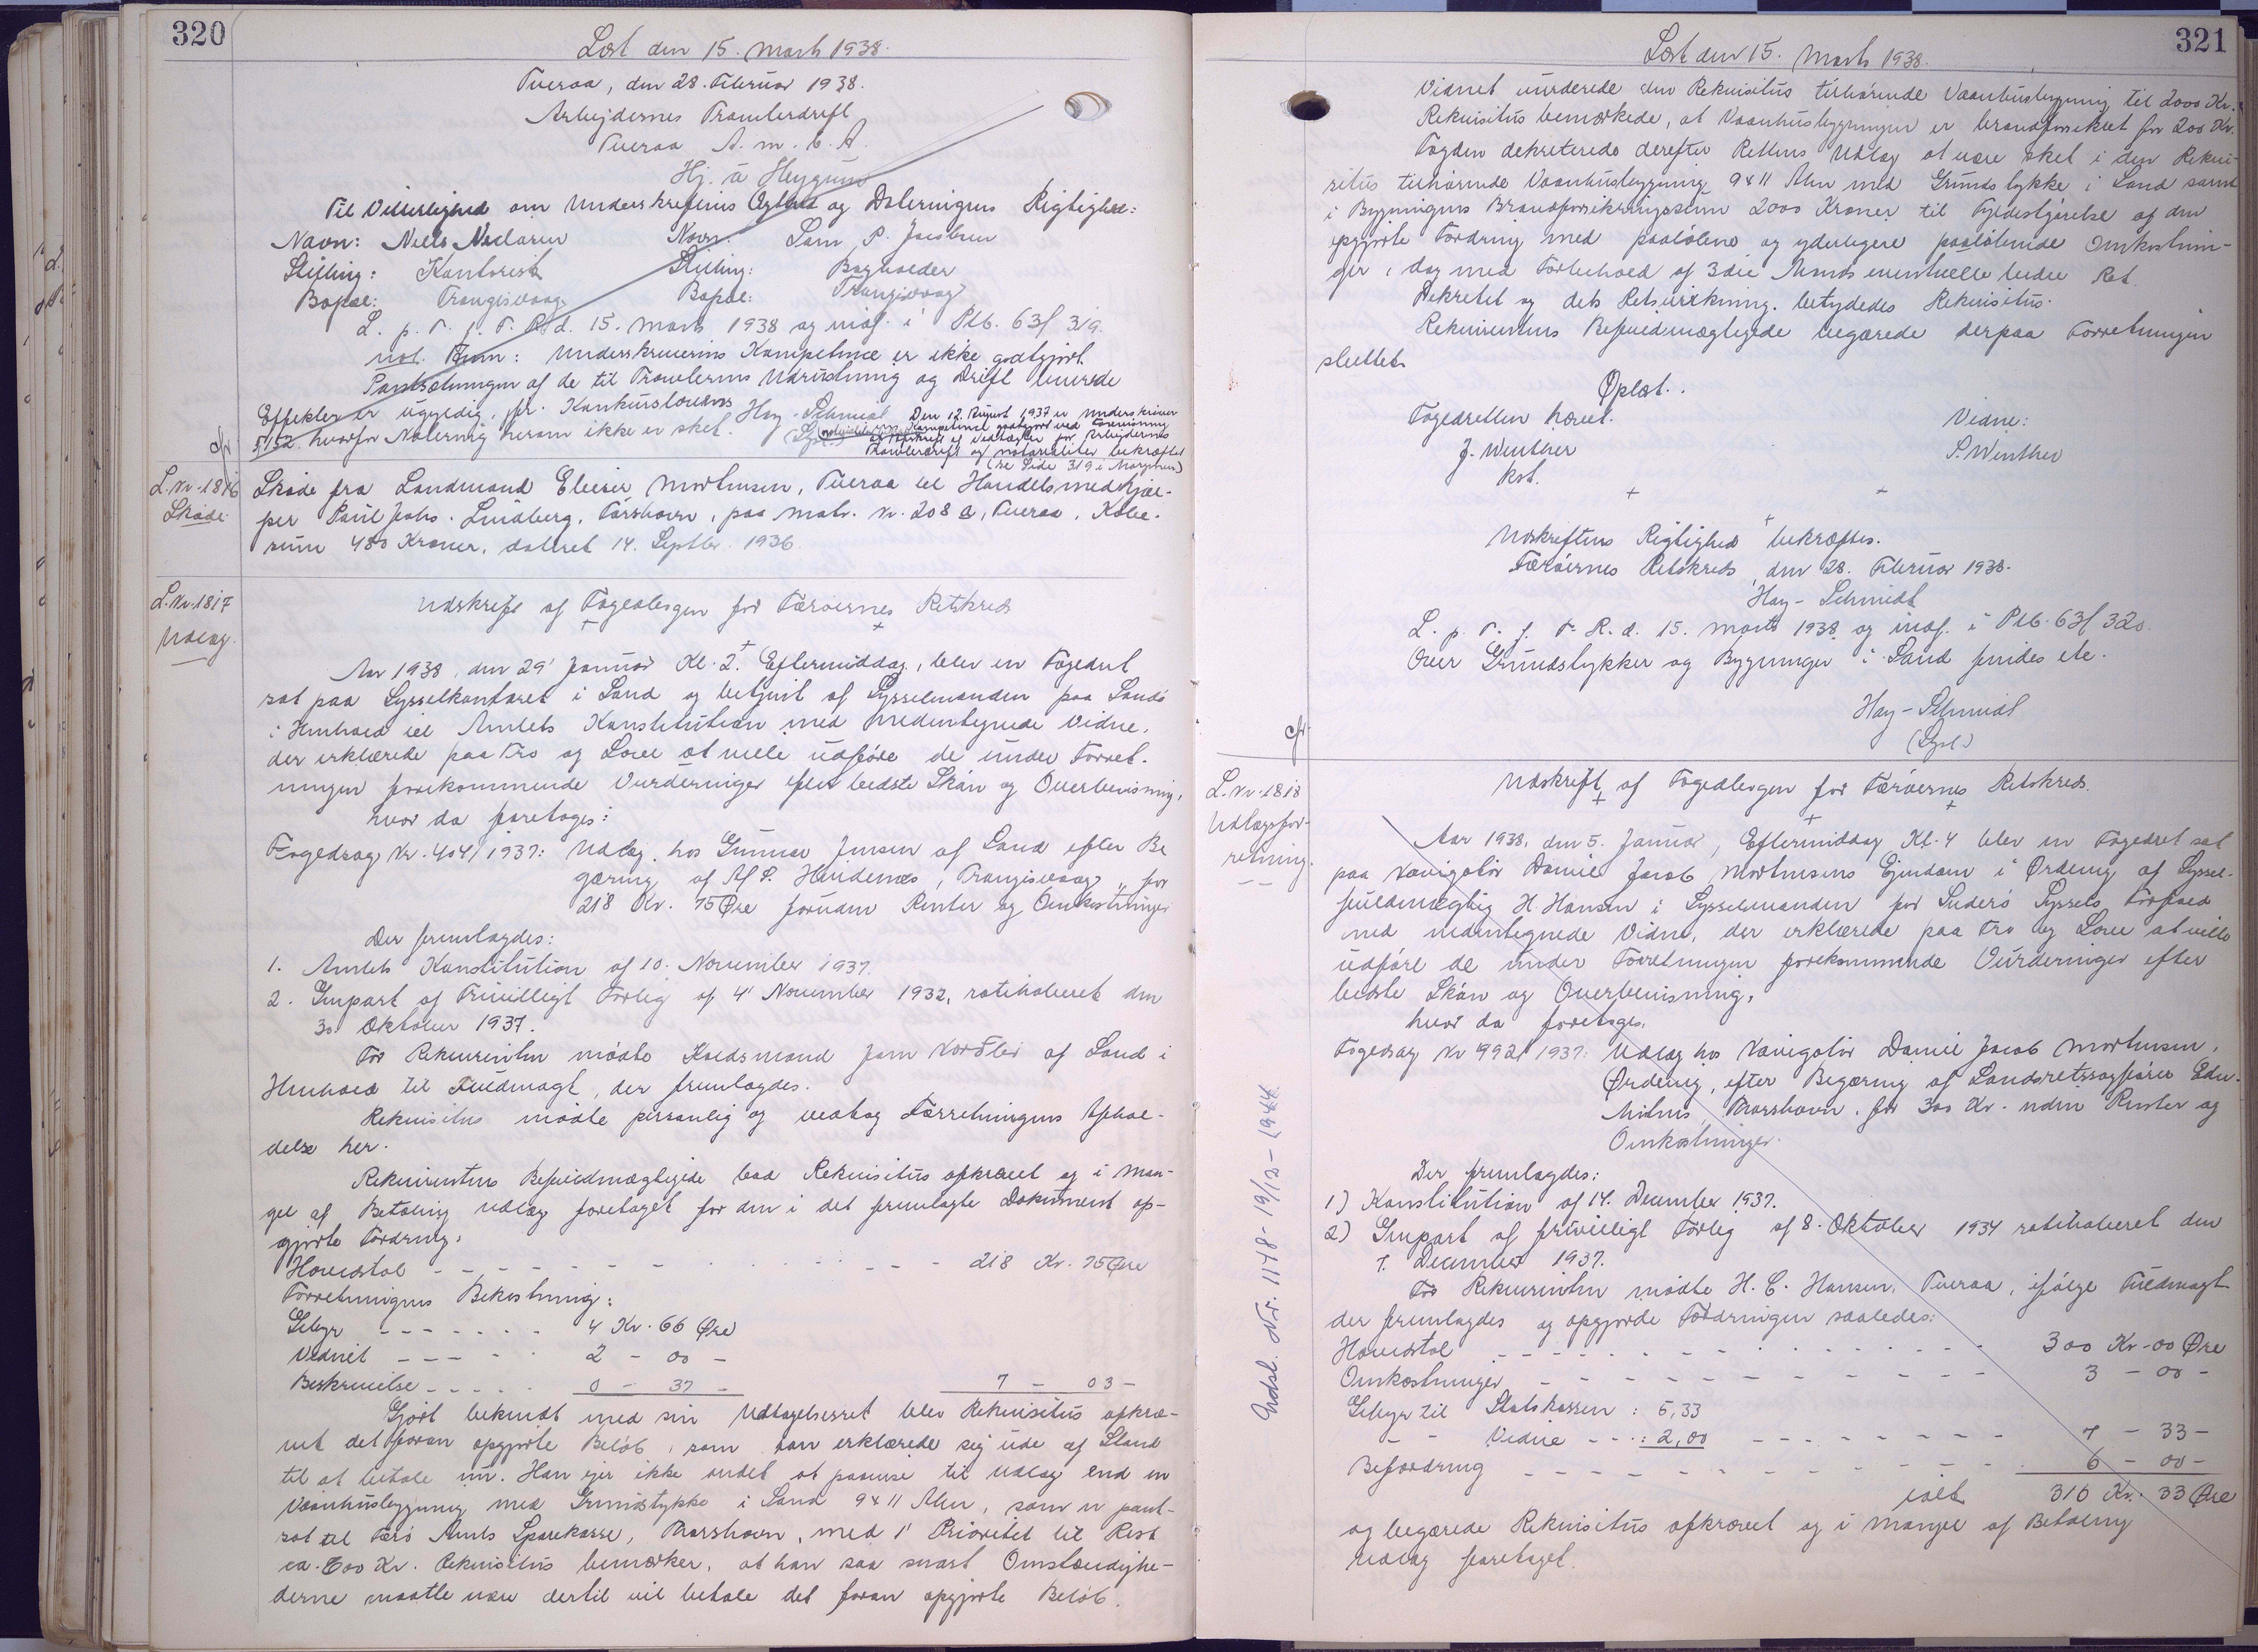 320
Læst den 15. Marts 1938.
Tveraa, den 28. Februar 1938.
Arbejdernes Trawlerdrift
Tveraa A. m. b. A.
Hj. á Heygum
Til Vitterlighed om Underskriftens Ægthed og Dateringens Rigtighed:
Navn: Niels Niclasen Navn: Sam. P. Jacobsen
Stilling: Kontorist Stilling: Bogholder
Bopæl: Trangisvaag Bopæl: Trangisvaag
L. p. T. f. F. R. d. 15. Marts 1938 og indf. i Ptb. 63 f 319.
Underskriverens Kompetence er ikke godtgjort.
Pantsætningen af de til Trawlerens Udrustning og Drift hørende
Effekter er ugyldig, jfr. Konkurslovens Hay-Schmidt Den 12. August 1937 er Underskriver
§ 152 hvorfor Notering herom ikke er sket. (Sgnd.) Kompetence godtgjort ved Forevisning
af Udskrift af Vedtægter for Arbejdernes
Trawlerdrift og notarialiter bekræftet
(se Side 319 i Margenen)
cfr
L. Nr. 1816 Skøde fra Landmand Elieser Mortensen, Tveraa til Handelsmedhjæl-
Skøde per Paul Johs. Lindberg, Tórshavn, paa Matr. Nr. 208 a, Tveraa, Købe-
sum 480 Kroner, dateret 14. Septbr. 1936.
L. Nr. 1817 Udskrift af Fogedbogen for Færøernes Retskreds
Udlæg.
Aar 1938, den 29' Januar Kl. 2. Eftermiddag, blev en Fogedret
sat paa Sysselkontoret i Sand og betjent af Sysselmanden paa Sandø
i Henhold til Amtets Konstitution med medentegnede Vidne,
der erklærede paa Tro og Love at ville udføre de under Forret-
ningen forekommende Vurderinger efter bedste Skøn og Overbevisning,
hvor da foretoges:
Fogedsag Nr. 404/1937: Udlæg hos Gunnar Jensen af Sand efter Be
gæring af Af P. Heinesens, Trangisvaag, for
218 Kr. 75 Øre foruden Renter og Omkostninger
Der fremlagdes:
1. Amtets Konstitution af 10. November 1937.
2. Genpart af Frivilligt Forlig af 4' November 1932, ratihaberet den
30. Oktober 1937.
For Rekvirenten mødte Handsmand Jørn Nordlei af Sand i
Henhold til Fuldmagt, der fremlagdes.
Rekvisitus mødte personlig og vedtog Forretningens Afhol-
delse her.
Rekvirentens Befuldmægtigede bad Rekvisitus afkrævet og i Man-
gel af Betaling Udlæg foretaget for den i det fremlagte Dokument op-
gjorte Fordring:
Hovedstol 218 Kr. 75 Øre
Forretningens Bekostning:
Gebyr 4 Kr. 66 Øre
Vidnet 2 - 00 -
Beskrivelse 0 - 37 - 7 - 03 -
Gjort bekendt med sin Udtagelsesret blev Rekvisitus afkræ-
vet det foran opgjorte Beløb, som han erklærede sig ude af Stand
til at betale nu. Han ejer ikke andet at paavise til Udlæg end en
Vaanhusbygning med Grundstykke i Sand 9 x 11 Alen, som er pant-
sat til Færø Amts Sparekasse, Thorshavn, med 1' Prioritet til Rest
ca. 600 Kr. Rekvisitus bemærker, at han saa snart Omstændighe-
derne maatte være dertil vil betale det foran opgjorte Beløb.
321
Læst den 15. Marts 1938.
Vidnet vurderede den Rekvisitus tilhørende Vaanhusbygning til 2000 Kr.
Rekvisitus bemærkede, at Vaanhusbygningen er brandforsikret for 200 Kr.
Fogden dekreterede derefter Rettens Udlæg at være sket i den Rekvi-
situs tilhørende Vaanhusbygning 9 x 11 Alen med Grundstykke i Sand samt
i Bygningens Brandforsikringssum 2000 Kroner til Fyldestgørelse af den
opgjorte Fordring med paaløbne og yderligere paaløbende Omkostnin-
ger, i dag med Forbehold af 3die Mands eventuelle bedre Ret.
Dekretet og dets Retsvirkning betydedes Rekvisitus.
Rekvirentens Befuldmægtigede begærede derpaa Forretningen
sluttet.
Oplæst.
Fogedretten hævet. Vidne:
J. Winther S. Winther
kst.
Udskriftens Rigtighed bekræftes.
Færøernes Retskreds, den 28. Februar 1938.
Hay-Schmidt
L. p. T. f. F. R. d. 15. Marts 1938 og indf. i Ptb. 63 f 320.
Over Grundstykker og Bygninger i Sand findes ete.
Hay-Schmidt
cfr. (Sgnd.)
L. Nr. 1818 Udskrift af Fogedbogen for Færøernes Retskreds.
Udlægsfor-
retning.
Aar 1938, den 5. Januar, Eftermiddag Kl. 4 blev en Fogedret sat
paa Navigatør Daniel Jacob Mortensens Ejendom i Ørdevig af Syssel-
fuldmægtig H. Hansen i Sysselmanden for Suderø Syssels Forfald
med medentegnede Vidne, der erklærede paa Tro og Love at ville
udføre de under Forretningen forekommende Vurderinger efter
bedste Skøn og Overbevisning,
hvor da foretoges.
Fogedsag Nr 992/1937: Udlæg hos Navigatør Daniel Jacob Mortensen,
Ørdevig, efter Begæring af Landsretssagfører Edw.
Mitens, Thorshavn, for 300 Kr. uden Renter og
Omkostninger.
Der fremlagdes:
1) Konstitution af 14. December 1937.
2) Genpart af frivilligt Forlig af 8. Oktober 1934 ratihaberet den
7. December 1937.
For Rekvirenten mødte H. C. Hansen, Tveraa, ifølge Fuldmagt
der fremlagdes og opgjorde Fordringen saaledes:
Hovedstol 300 Kr - 00 Øre
Omkostninger 3 - 00 -
Gebyr til Statskassen: 5,33
- - Vidne : 2,00 7 - 33 -
Befordring 6 - 00 -
ialt 316 Kr. 33 Øre
og begærede Rekvisitus afkrævet og i Mangel af Betaling
Udlæg foretaget.
Indsl. Nr. 1178 - 19/12 - 1944